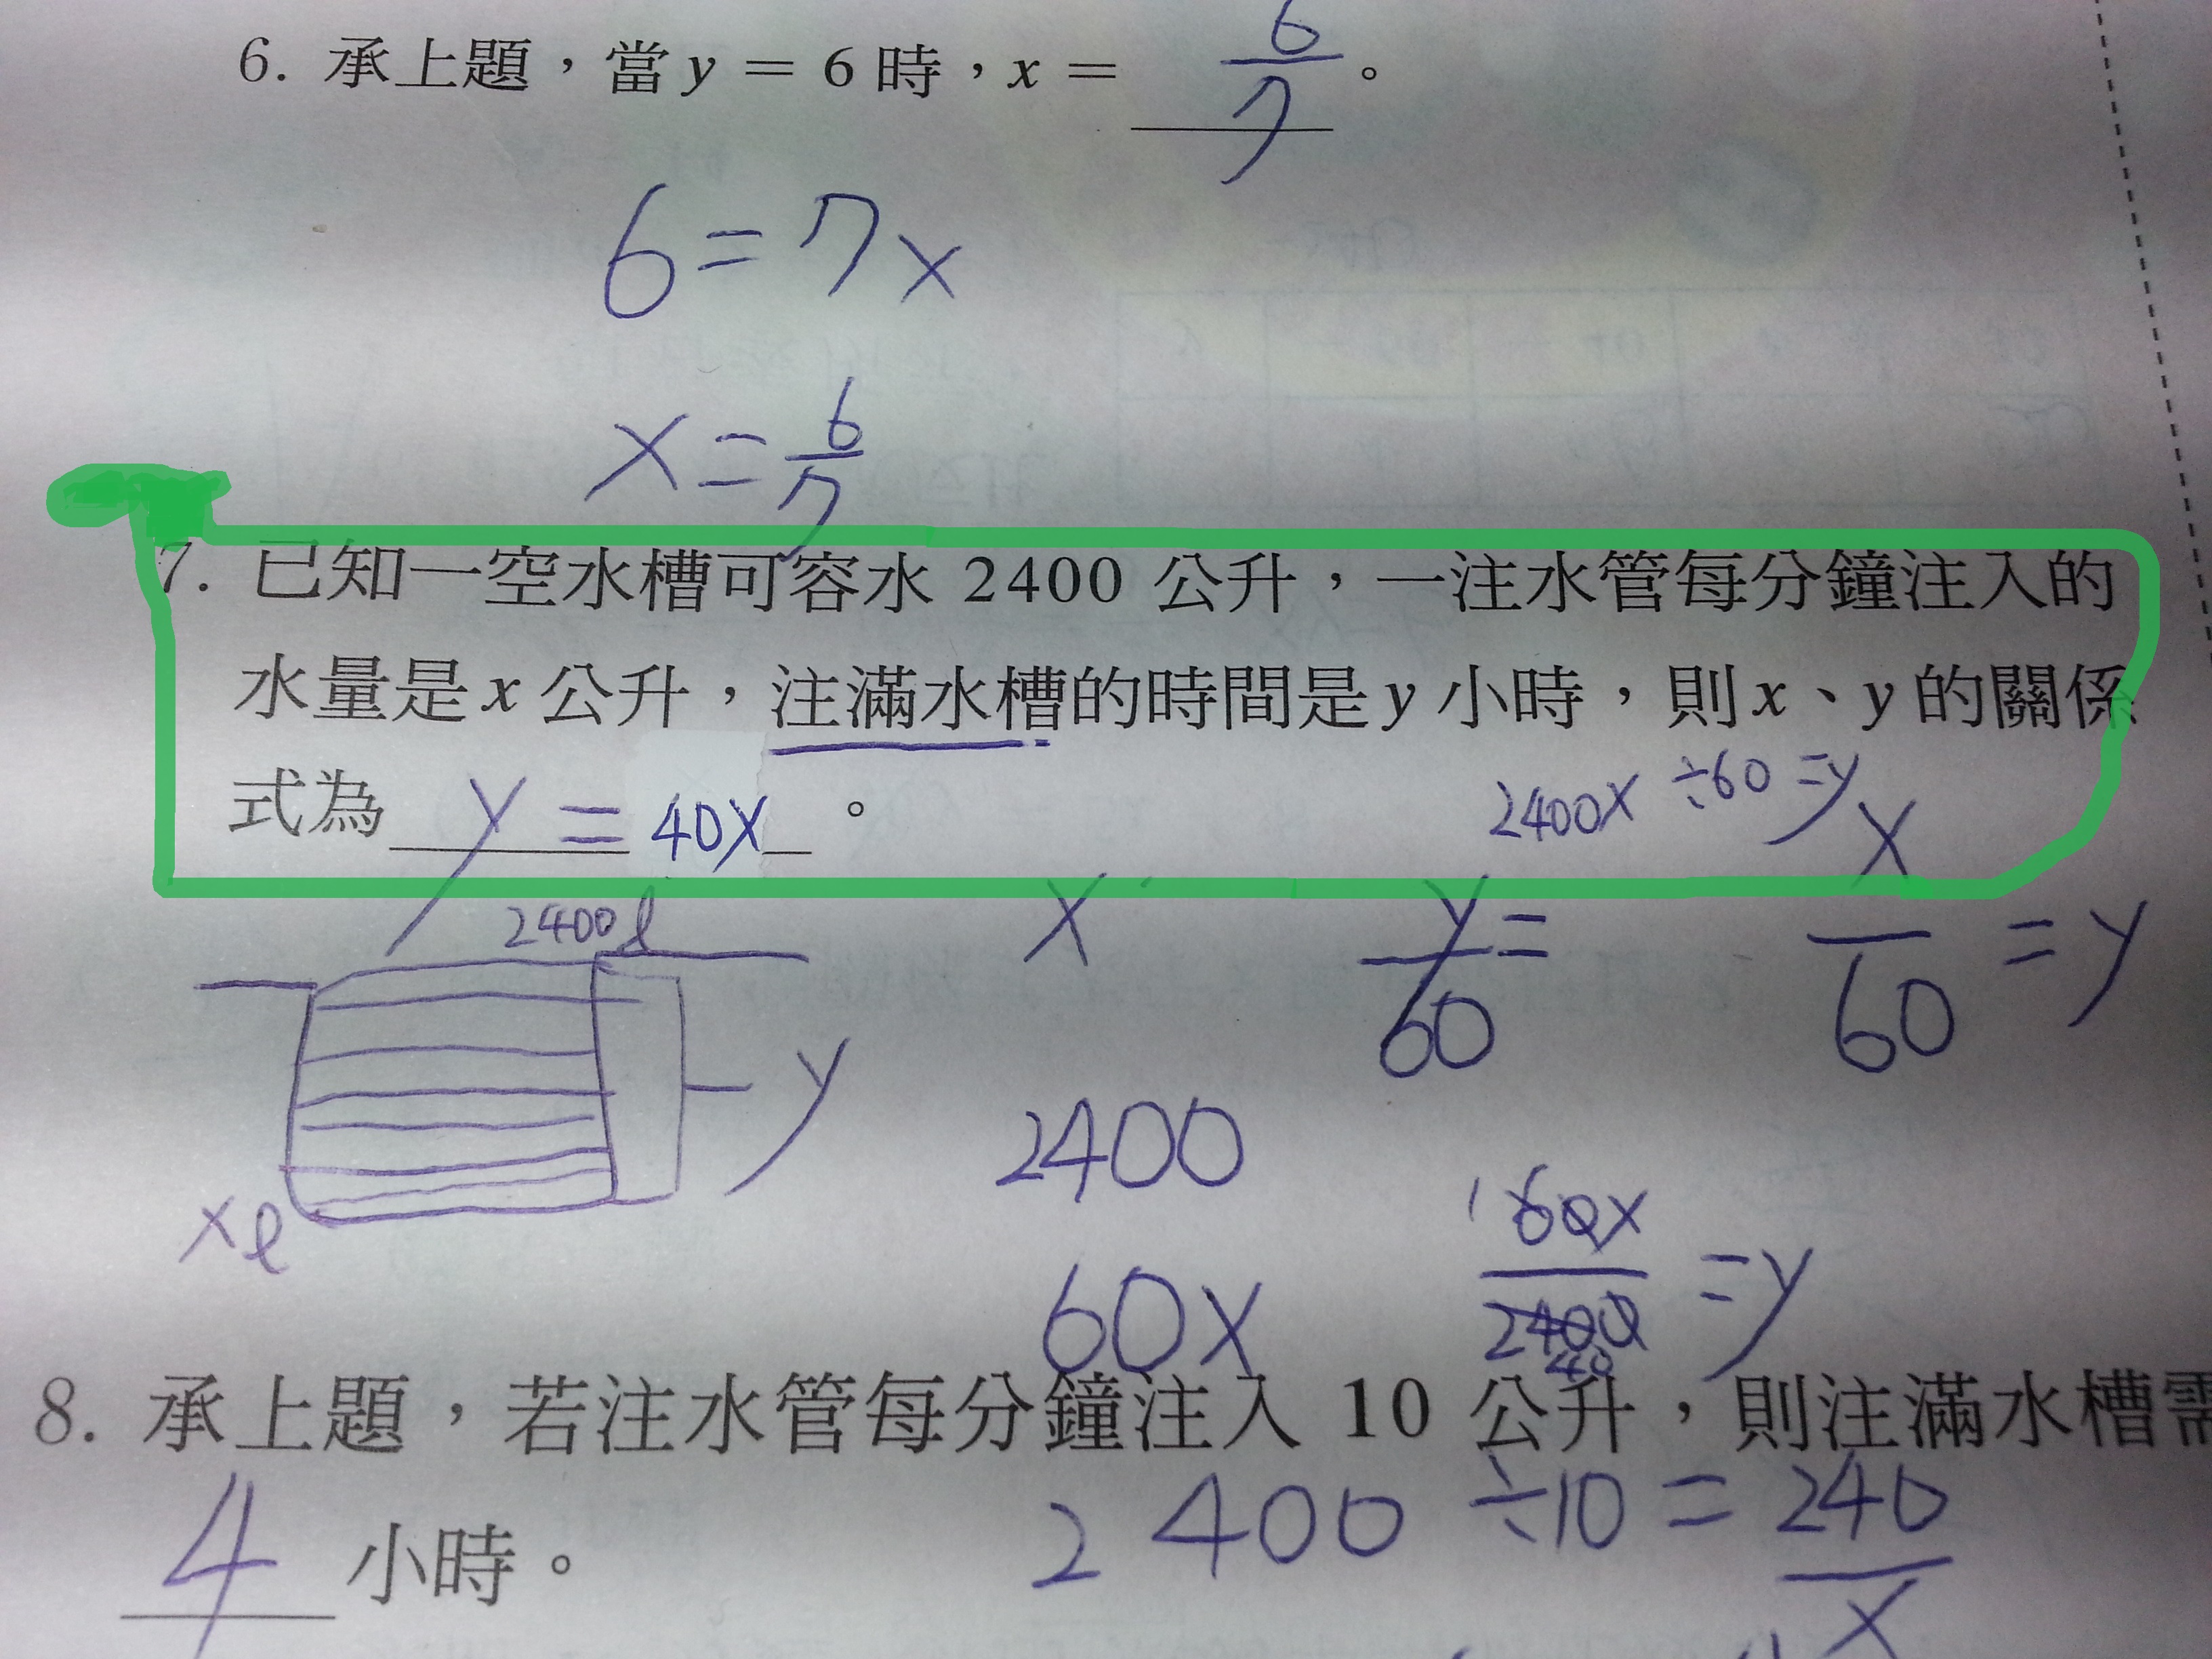 6. 承上題，當 y = 6 時，x = 6/7。
6 = 7x
x = 6/7
7. 已知一空水槽可容水 2400 公升，一注水管每分鐘注入的
水量是 x 公升，注滿水槽的時間是 y 小時，則 x、y 的關係
式為 y = 40x。
2400x ÷60 = y
2400 l
x
y/60 =
x/60 = y
y
2400
x l
60x
1 60x/2400 = y
40
8. 承上題，若注水管每分鐘注入 10 公升，則注滿水槽需
4 小時。
2400 ÷10 = 240
x